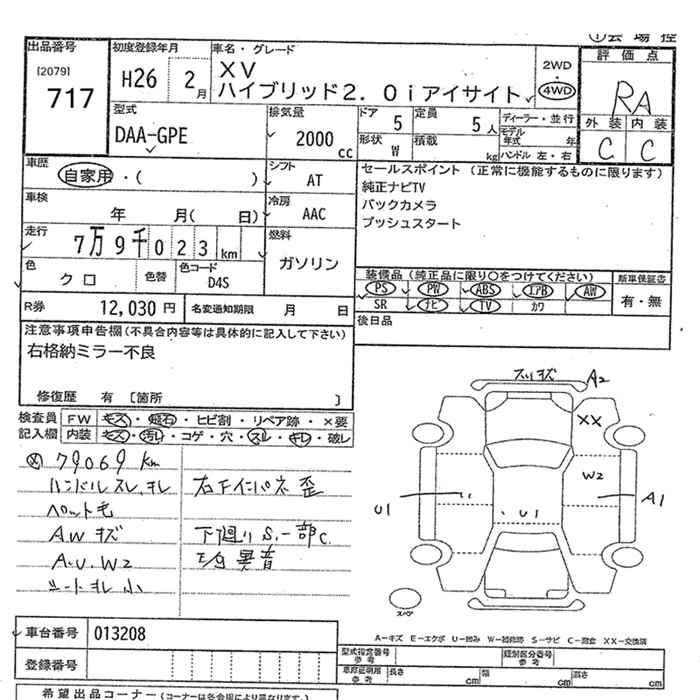 出品番号
[2079]
717
初度登録年月
H26 2月
車名・グレード
XV
ハイブリッド2.0iアイサイト
2WD
4WD
評価点
RA
外装 内装
C C
型式
DAA-GPE
排気量
2000 cc
ドア 5
定員 5人
形状 W
積載 kg
ディーラー・並行
モデル年式 年
ハンドル 左・右
車歴
自家用・( )
シフト AT
車検
年 月( 日)
冷房 AAC
走行
7万9千023km
燃料
ガソリン
色
クロ
色替
色コード
D4S
R券 12,030円
名変通知期限 月 日
セールスポイント(正常に機能するものに限ります)
純正ナビTV
バックカメラ
プッシュスタート
装備品(純正品に限り○をつけてください)
PS PW ABS エアB AW
SR ナビ TV カワ
新車保証書
有・無
後日品
注意事項申告欄(不具合内容等は具体的に記入して下さい)
右格納ミラー不良
修復歴 有 [箇所 ]
検査員記入欄
FW キズ・飛石・ヒビ割・リペア跡・×要
内装 キズ・汚レ・コゲ・穴・スレ・キレ・破レ
79069 km
ハンドルスレ、キレ
ペット毛
A.W キズ
A.U.W2
シートキレ小
右Fインパネ歪
下廻りS.一部C.
異音
スリキズ A2
XX
W2
A1
U1
U1
スペア
A-キズ E-エクボ U-凹み W-補修跡 S-サビ C-腐食 XX-交換済
車台番号 013208
登録番号
型式指定番号 参考
類別区分番号 参考
車両寸法 参考
長さ cm
幅 cm
高さ cm
希望出品コーナー(コーナーは各会場により異なります)